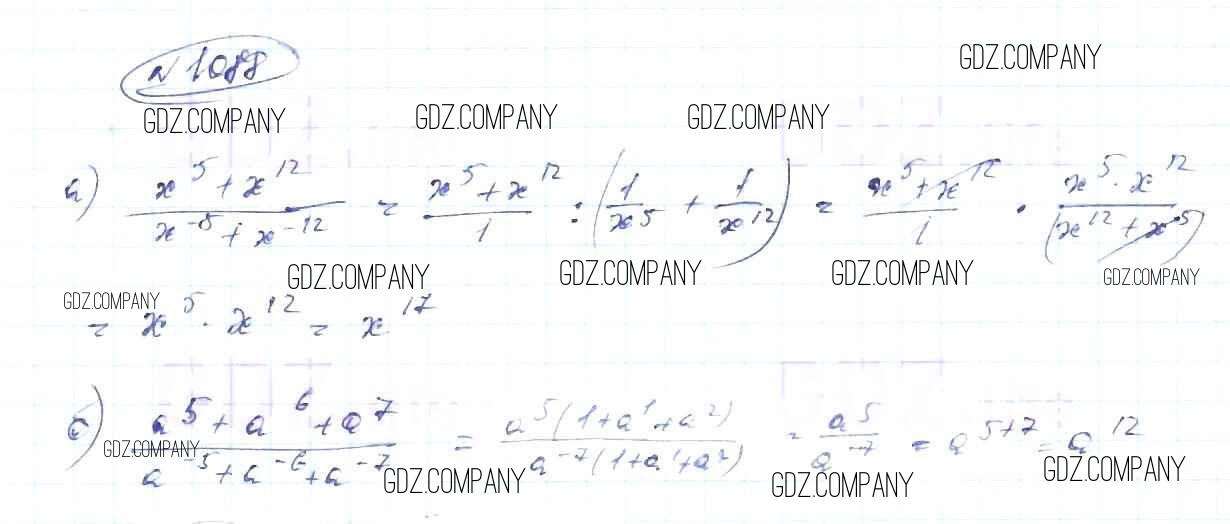 №1088
GDZ.COMPANY
GDZ.COMPANY GDZ.COMPANY GDZ.COMPANY
а) (x^5 + x^12)/(x^-5 + x^-12) = (x^5 + x^12)/1 : (1/x^5 + 1/x^12) = (x^5 + x^12)/1 · (x^5 · x^12)/(x^12 + x^5)
GDZ.COMPANY GDZ.COMPANY GDZ.COMPANY GDZ.COMPANY
GDZ.COMPANY
= x^5 · x^12 = x^17
б) (a^5 + a^6 + a^7)/(a^-5 + a^-6 + a^-7) = a^5(1 + a^1 + a^2)/a^-7(1 + a^1 + a^2) = a^5/a^-7 = a^5+7 = a^12
GDZ.COMPANY GDZ.COMPANY GDZ.COMPANY GDZ.COMPANY